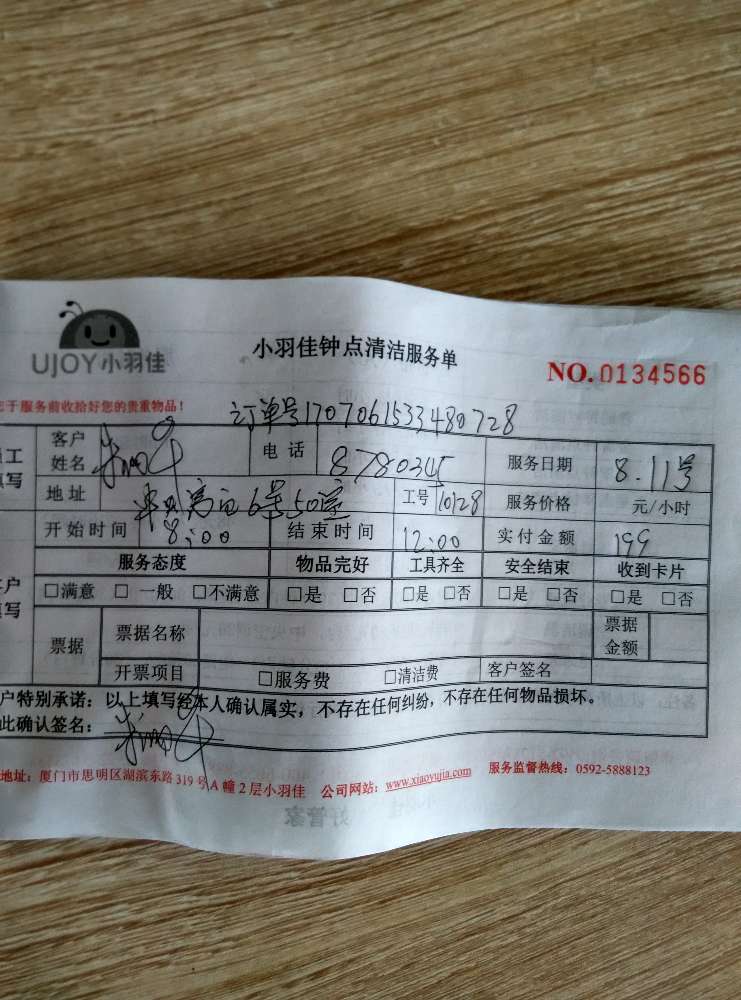 UJOY小羽佳
小羽佳钟点清洁服务单
NO.0134566
于服务前收拾好您的贵重物品!
订单号170706153348 0728
工 客户姓名 电话 8780345 服务日期 8.11号
填写 地址 6 50室 工号 10128 服务价格 元/小时
开始时间 8:00 结束时间 12:00 实付金额 199
服务态度 物品完好 工具齐全 安全结束 收到卡片
户 □满意 □一般 □不满意 □是 □否 □是 □否 □是 □否 □是 □否
写 票据 票据名称 票据金额
开票项目 □服务费 □清洁费 客户签名
户特别承诺:以上填写经本人确认属实,不存在任何纠纷,不存在任何物品损坏。
此确认签名:
地址:厦门市思明区湖滨东路319号A幢2层小羽佳 公司网站:www.xiaoyujia.com 服务监督热线:0592-5888123